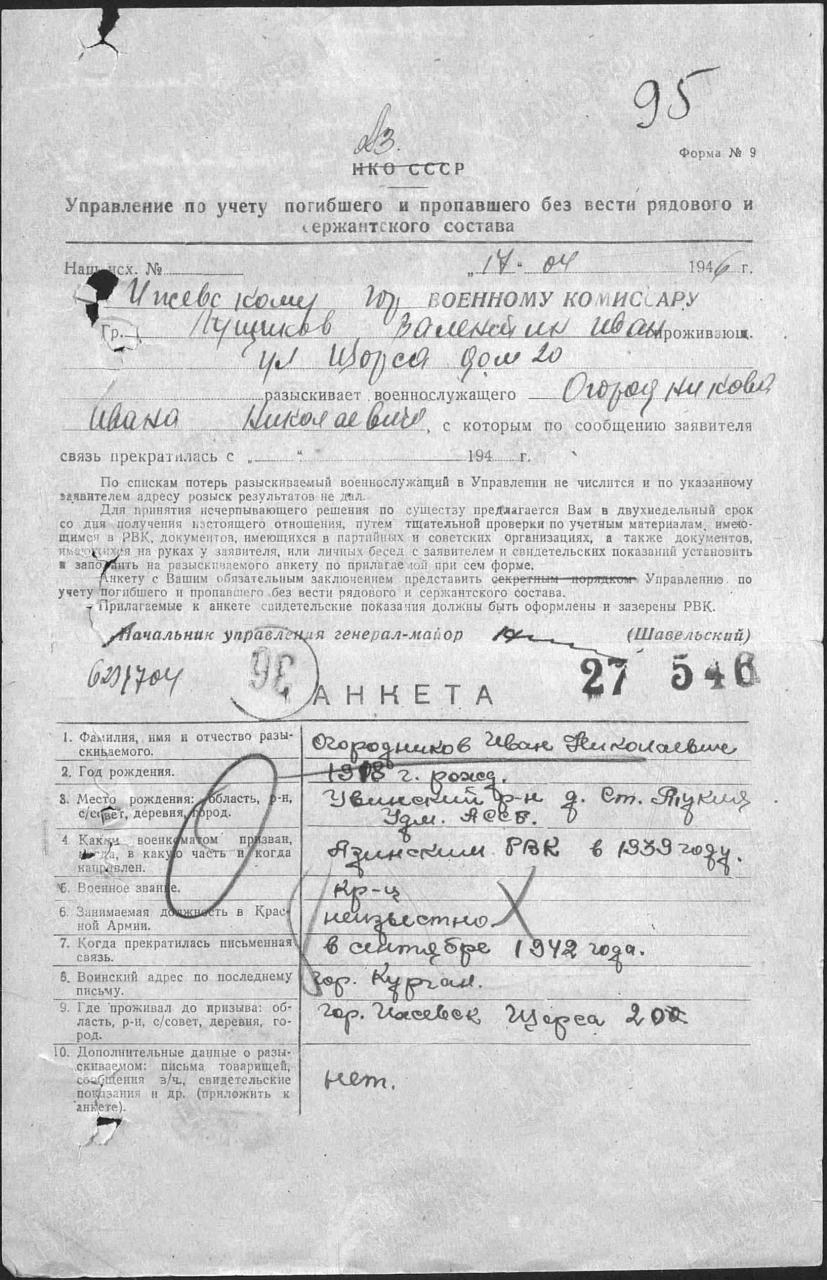 95
Форма № 9
НКО СССР
Управление по учету погибшего и пропавшего без вести рядового и
сержантского состава
Наш исх. № „17" 04 1946 г.
Ижевскому Гор ВОЕННОМУ КОМИССАРУ
Гр. Лущиков Валентин Иван проживающ.
ул Щорса дом 20
разыскивает военнослужащего Огородникова
Ивана Николаевича, с которым по сообщению заявителя
связь прекратилась с „ " 194 г.
По спискам потерь разыскиваемый военнослужащий в Управлении не числится и по указанному
заявителем адресу розыск результатов не дал.
Для принятия исчерпывающего решения по существу предлагается Вам в двухнедельный срок
со дня получения настоящего отношения, путем тщательной проверки по учетным материалам, имею-
щимся в РВК, документов, имеющихся в партийных и советских организациях, а также документов,
имеющихся на руках у заявителя, или личных бесед с заявителем и свидетельских показаний установить
и заполнить на разыскиваемого анкету по прилагаемой при сем форме.
Анкету с Вашим обязательным заключением представить секретным порядком Управлению по
учету погибшего и пропавшего без вести рядового и сержантского состава.
Прилагаемые к анкете свидетельские показания должны быть оформлены и заверены РВК.
Начальник управления генерал-майор (Шавельский)
96 27546
АНКЕТА
1. Фамилия, имя и отчество разы-
скиваемого.
Огородников Иван Николаевич
2. Год рождения.
1918 г. рожд.
3. Место рождения: область, р-н,
с/совет, деревня, город.
Увинский р-н д. Ст.
Удм. АССР.
4 Каким военкоматом призван,
когда, в какую часть и когда
направлен.
Азинским РВК в 1939 году.
5. Военное звание.
Кр-ц
6. Занимаемая должность в Крас-
ной Армии.
неизвестно
7. Когда прекратилась письменная
связь.
в сентябре 1942 года.
8. Воинский адрес по последнему
письму.
гор. Курган.
9. Где проживал до призыва: об-
ласть, р-н, с/совет, деревня, го-
род.
гор. Ижевск Щорса
10. Дополнительные данные о разы-
скиваемом: письма товарищей,
сообщения в/ч., свидетельские
показания и др. (приложить к
анкете).
нет.